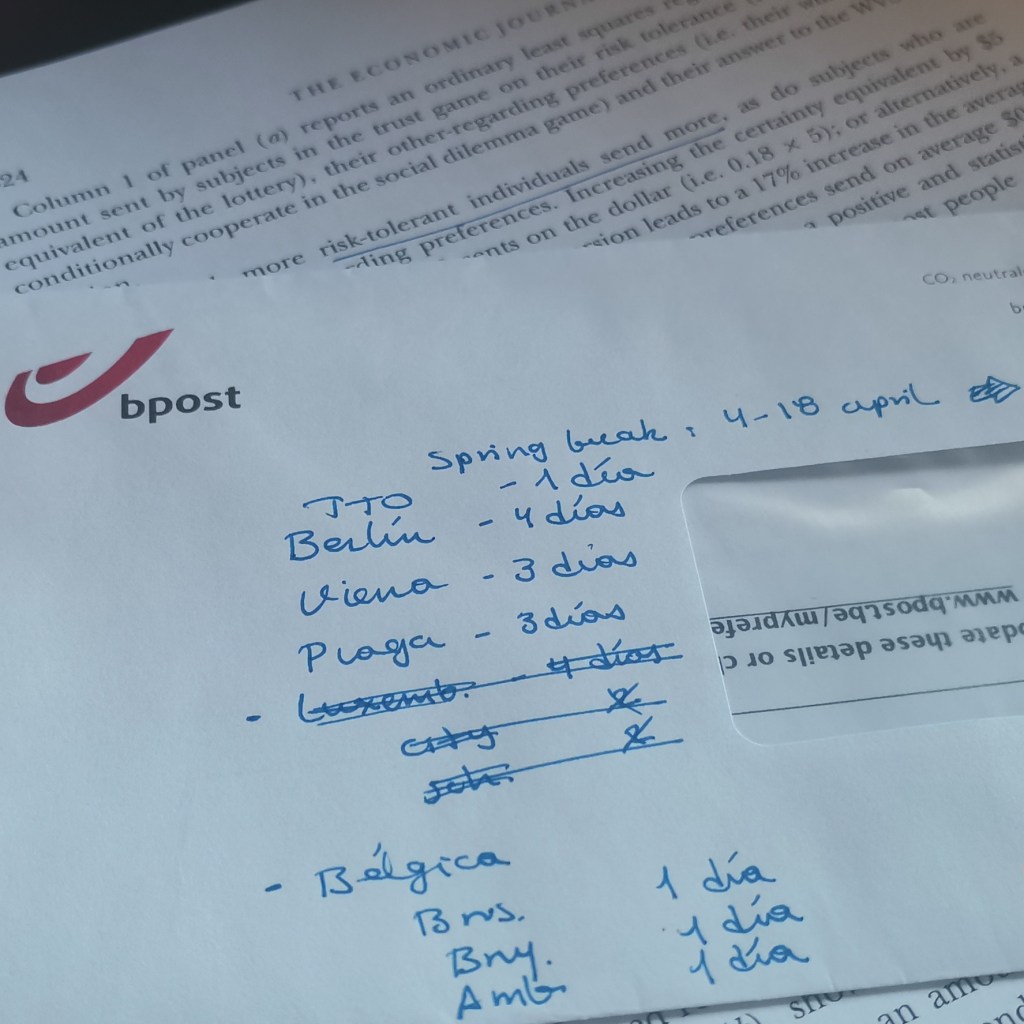 24
THE ECONOMIC JOURNA
Column 1 of panel (a) reports an ordinary least squares
amount sent by subjects in the trust game on their risk tolerance
equivalent of the lottery), their other-regarding preferences (i.e. their
conditionally cooperate in the social dilemma game) and their answer to the WV
more risk-tolerant individuals send more, as do subjects who are
rding preferences. Increasing the certainty equivalent by $5
ents on the dollar (i.e. 0.18 × 5); or alternatively, a
sion leads to a 17% increase in the average
references send on average $0
a positive and statist
st people
CO₂ neutral
bpost
Spring break : 4-18 april
TTO - 1 día
Berlín - 4 días
Viena - 3 días
Praga - 3 días
- Luxemb. - 4 días
city 2
sch. 2
- Bélgica
Brus. 1 día
Bruj. 1 día
Amb 1 día
www.bpost.be/myprefe
pdate these details or c
sho
an amou